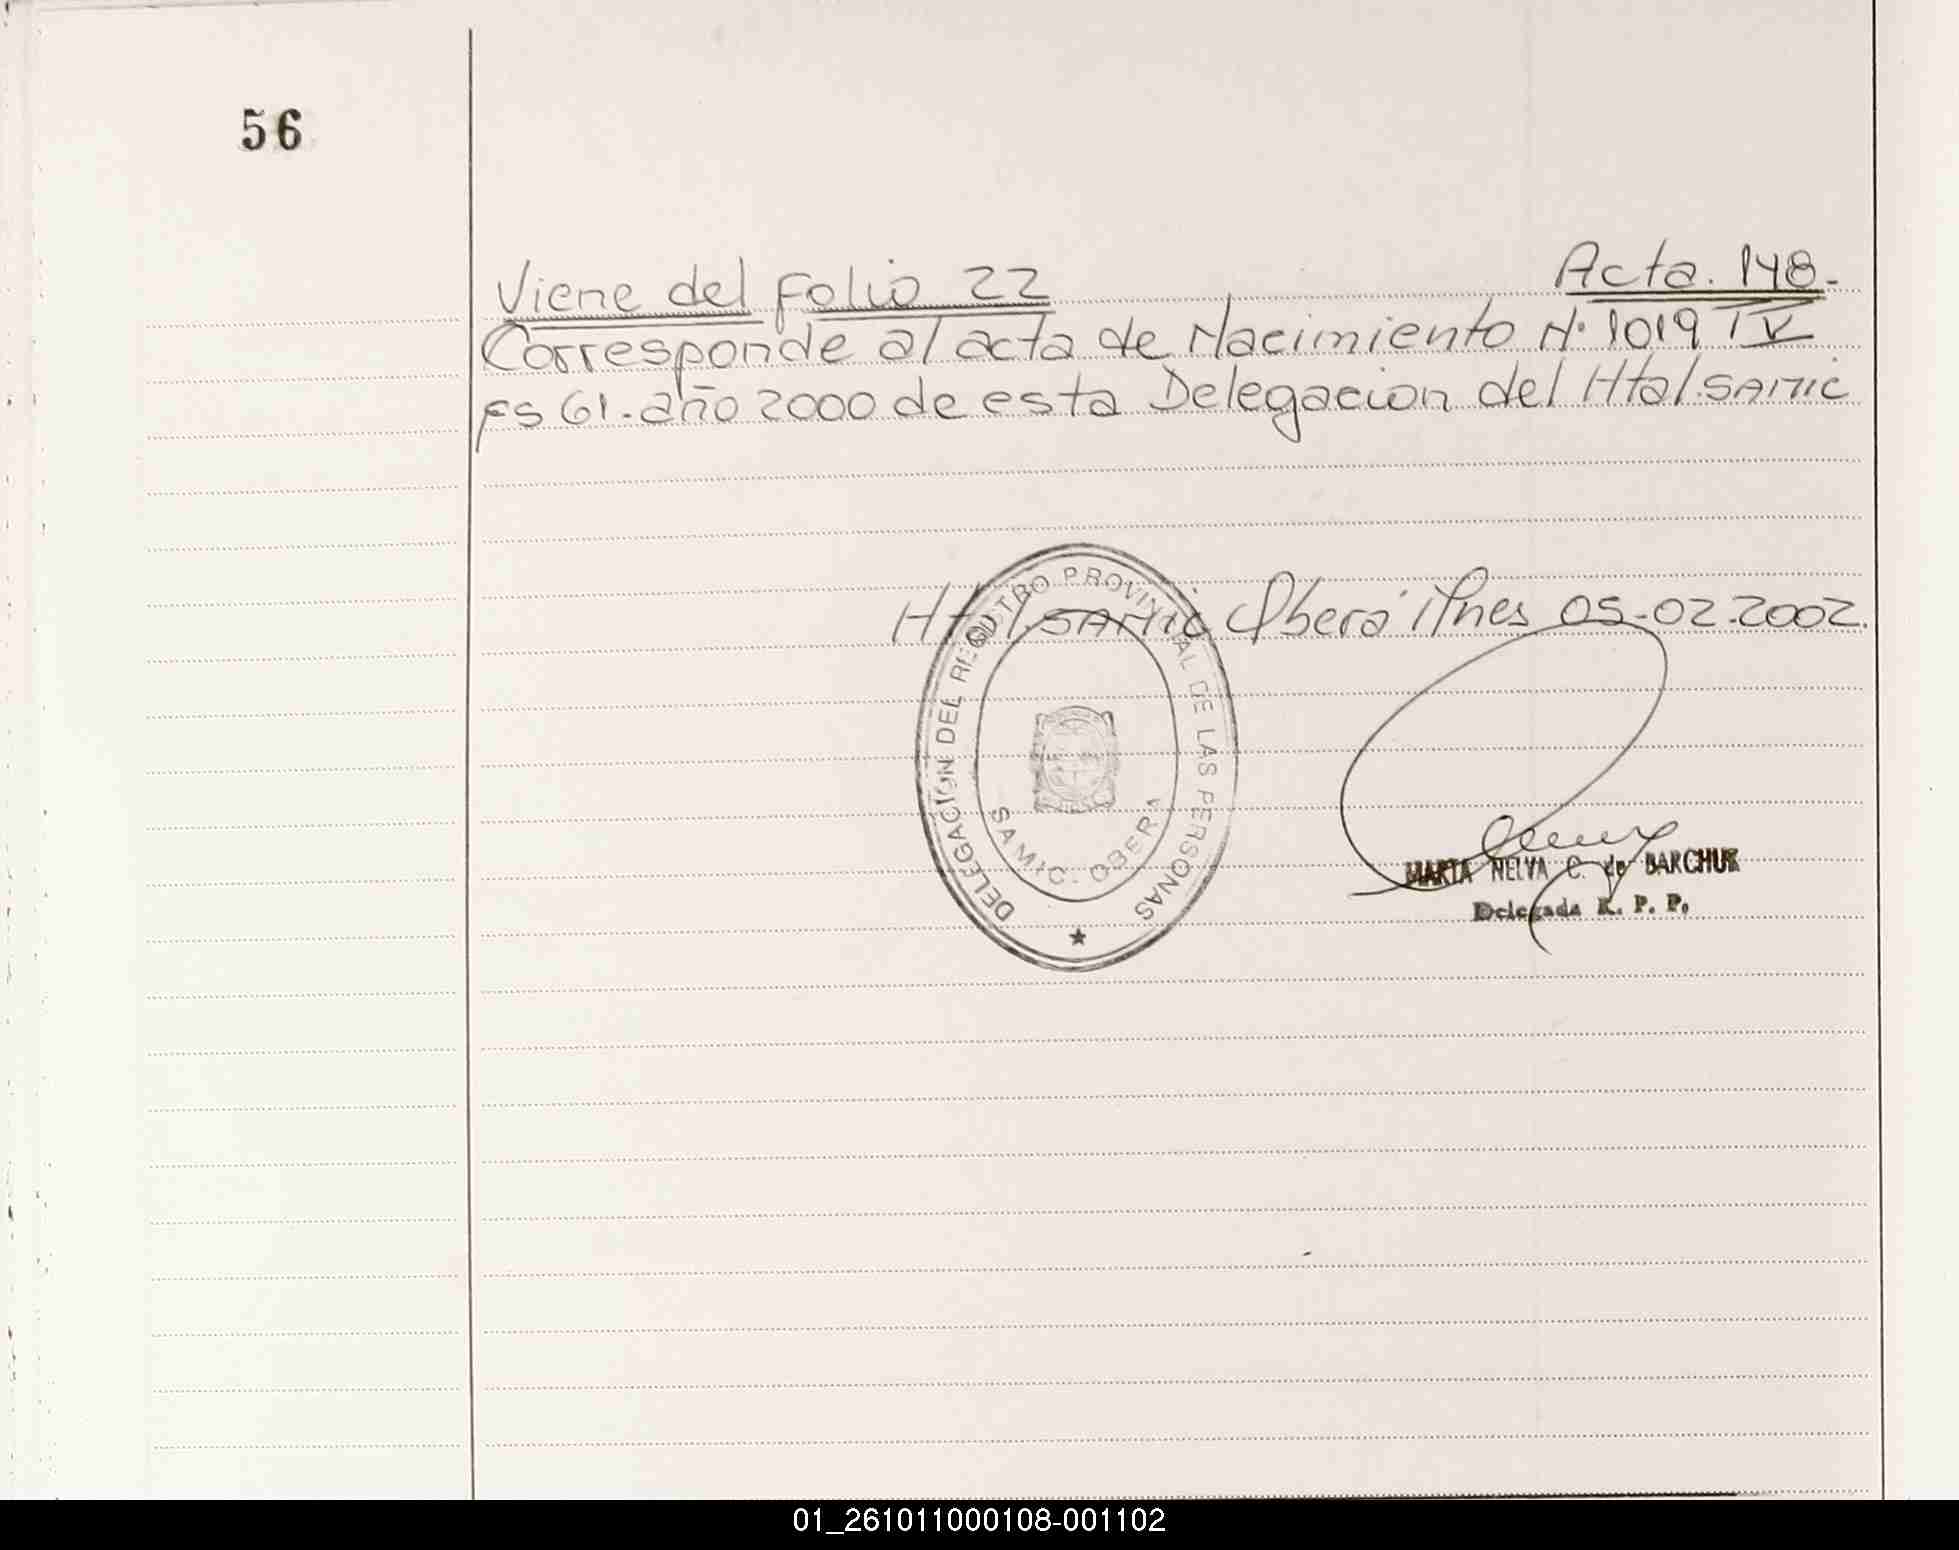 56
Viene del Folio 22 Acta. 148.-
Corresponde al acta de Nacimiento N° 1019 T V
Fs 61. año 2000 de esta Delegacion del Htal. SAMIC
Htal. SAMIC Oberá Mnes 05-02-2002.
DELEGACION DEL REGISTRO PROVINCIAL DE LAS PERSONAS
SAMIC. OBERA
MARTA NELVA C. de BARCHUK
Delegada R. P. P.
01_261011000108-001102